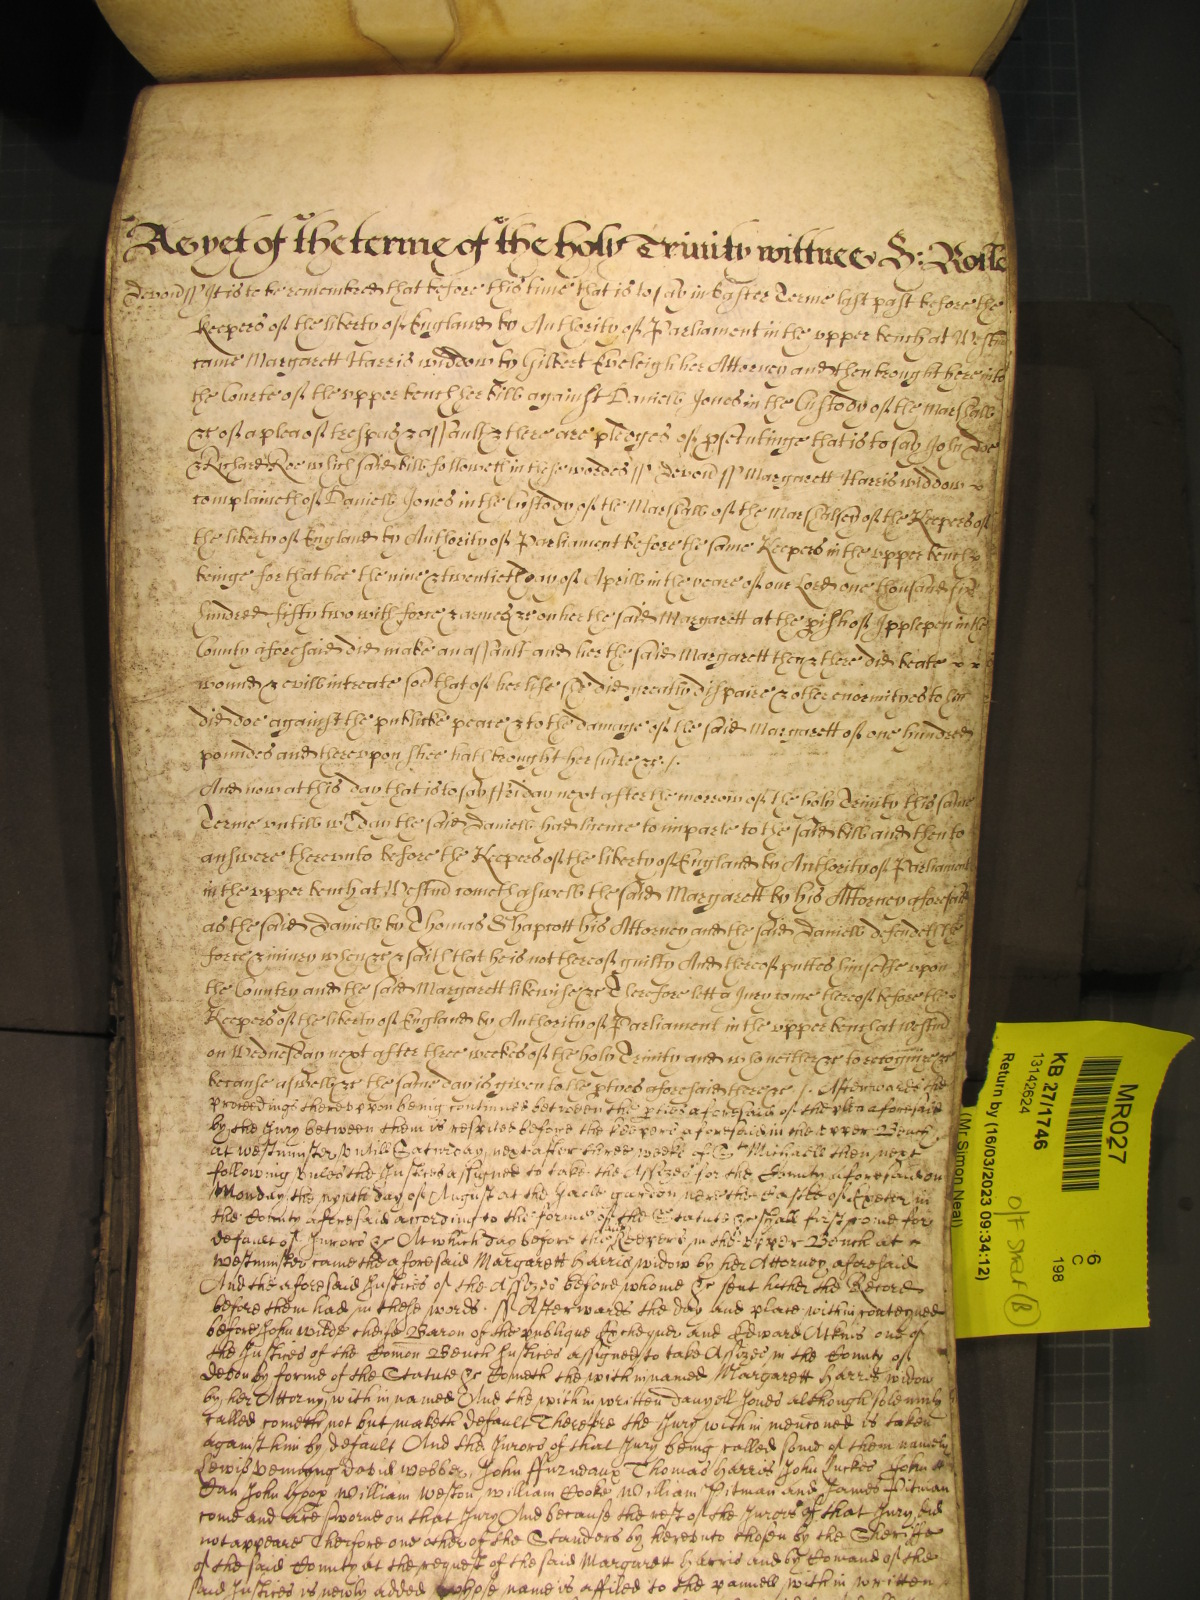 As yet of the terme of the holy Trinity wittnes H: Rolle
Devon ss It is to be remembred that before this time that is to say in Easter Terme last past before the
Keepers of the liberty of England by Authority of Parliament in the upper bench at Westm
came Margarett Harris widdow by Gilbert Eveleigh her Attorney and then brought here into
the Courte of the upper bench her bill against Daniell Jones in the Custody of the Marshall
&c of a plea of trespas & assault & there are pledges of psecutinge that is to say John Doe
& Richard Roe which said bill followeth in these wordes ss Devon ss Margarett Harris widdow
complaineth of Daniell Jones in the Custody of the Marshall of the Marshalsey of the Keepers of
the liberty of England by Authority of Parliament before the same Keepers in the upper bench
beinge for that hee the nine & twentieth day of Aprill in the yeare of our Lord one thousand six
hundred fifty two with force & armes &c on her the said Margarett at the pish of Ipplepen in the
County aforesaid did make an assault and her the said Margarett then & there did beate
wound & evill intreate soe that of her life she did greatly dispaire & other enormityes to her
did doe against the publicke peace & to the damage of the said Margarett of one hundred
poundes and thereupon shee hath brought her suite &c
And now at this day that is to say ffriday next after the morrow of the holy Trinity this same
Terme untill wch day the said Daniell had licence to imparle to the said bill and then to
answere thereunto before the Keepers of the liberty of England by Authority of Parliament
in the upper bench at Westm cometh aswell the said Margarett by his Attorney aforesaid
as the said Daniell by Thomas Shapcott his Attorney and the said Daniell defendeth the
force & iniury when &c & saith that he is not thereof guilty And thereof puttes himselfe upon
the Country and the said Margarett likewise &c Therefore lett a Jury come thereof before the
Keepers of the liberty of England by Authority of Parliament in the upper bench at westm
on Wednesday next after three weekes of the holy Trinity and who neither &c to recognize &c
because aswell &c the same day is given to the ptyes aforesaid there &c Afterwards the
proceedings thereupon being continued betweene the pties aforesaid of the plea aforesaid
by the Jury betweene them is respited before the keepers aforesaid in the upper Bench
at westminster untill Saturday next after three weeks of St Michaell then next
following unles the Justices assigned to take the Assizes for the County aforesaid on
Monday the nynth day of August at the Castle of Exeter in
the County aforesaid according to the forme of the Statute &c shall first come for
default of Jurors &c At which day before the Keepers in the upper Bench at
westminster came the aforesaid Margarett Harris widow by her Attorney aforesaid
And the aforesaid Justices of the Assizes before whome &c sent hither the Record
before them had in these words ss Afterwards the day and place within conteyned
before John wilde cheife Baron of the publique Exchequer and Edward Atkins one of
the Justices of the Comon Bench Justices assigned to take Assizes in the County of
Devon by forme of the Statute &c Cometh the within named Margarett harris widow
by her Attorny within named And the within written Danyell Jones although solemnly
called cometh not but maketh default Therefore the Jury within mencioned is taken
against him by default And the Jurors of that Jury being called some of them namely
Lewis David webber, John Thomas harris John John
Dan John William Weston William Cooke William Pitman and James Pitman
come and are sworne on that Jury And because the rest of the Jurors of that Jury did
not appeare Therfore one other of the Standers by hereunto chosen by the Sheriffe
of the said County at the request of the said Margarett harris and by Comand of the
said Justices is newly added whose name is affiled to the pannell within written
MR027
KB 27/1746
13142624
Return by (16/03/2023 09:34:12)
(Mr Simon Neal)
6
C
198